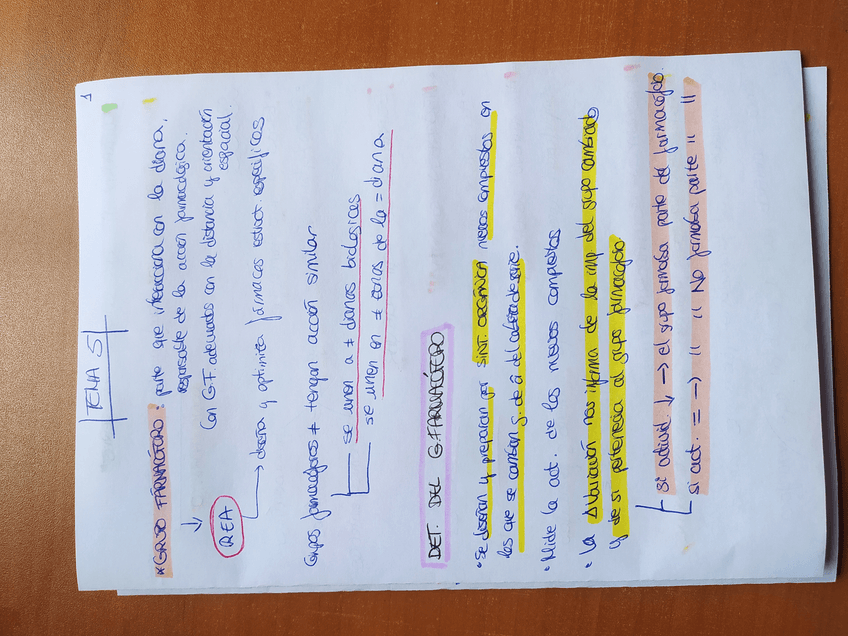 1
TEMA 5
*GRUPO FARMACÓFORO: parte que interacciona con la diana,
responsable de la acción farmacológica.
↓ Con G.F adecuados en la distancia y orientación
espacial.
REA
→ diseña y optimiza fármacos estruct. específicos
Grupos farmacóforos ≠ tengan acción similar
se unen a ≠ dianas biológicas
se unen en ≠ zonas de la = diana
DET. DEL G.FARMACÓFORO
• Se diseñan y preparan por SÍNT. ORGÁNICA nuevos compuestos en
los que se cambian g. de á del cabeza de serie.
• Mide la act. de los nuevos compuestos
• La Δ Variación nos informa de la imp del grupo cambiado
y de si pertenecía al grupo farmacóforo
si activid. ↓ → el grupo formaba parte del farmacóforo.
si act. = → " " No formaba parte " "